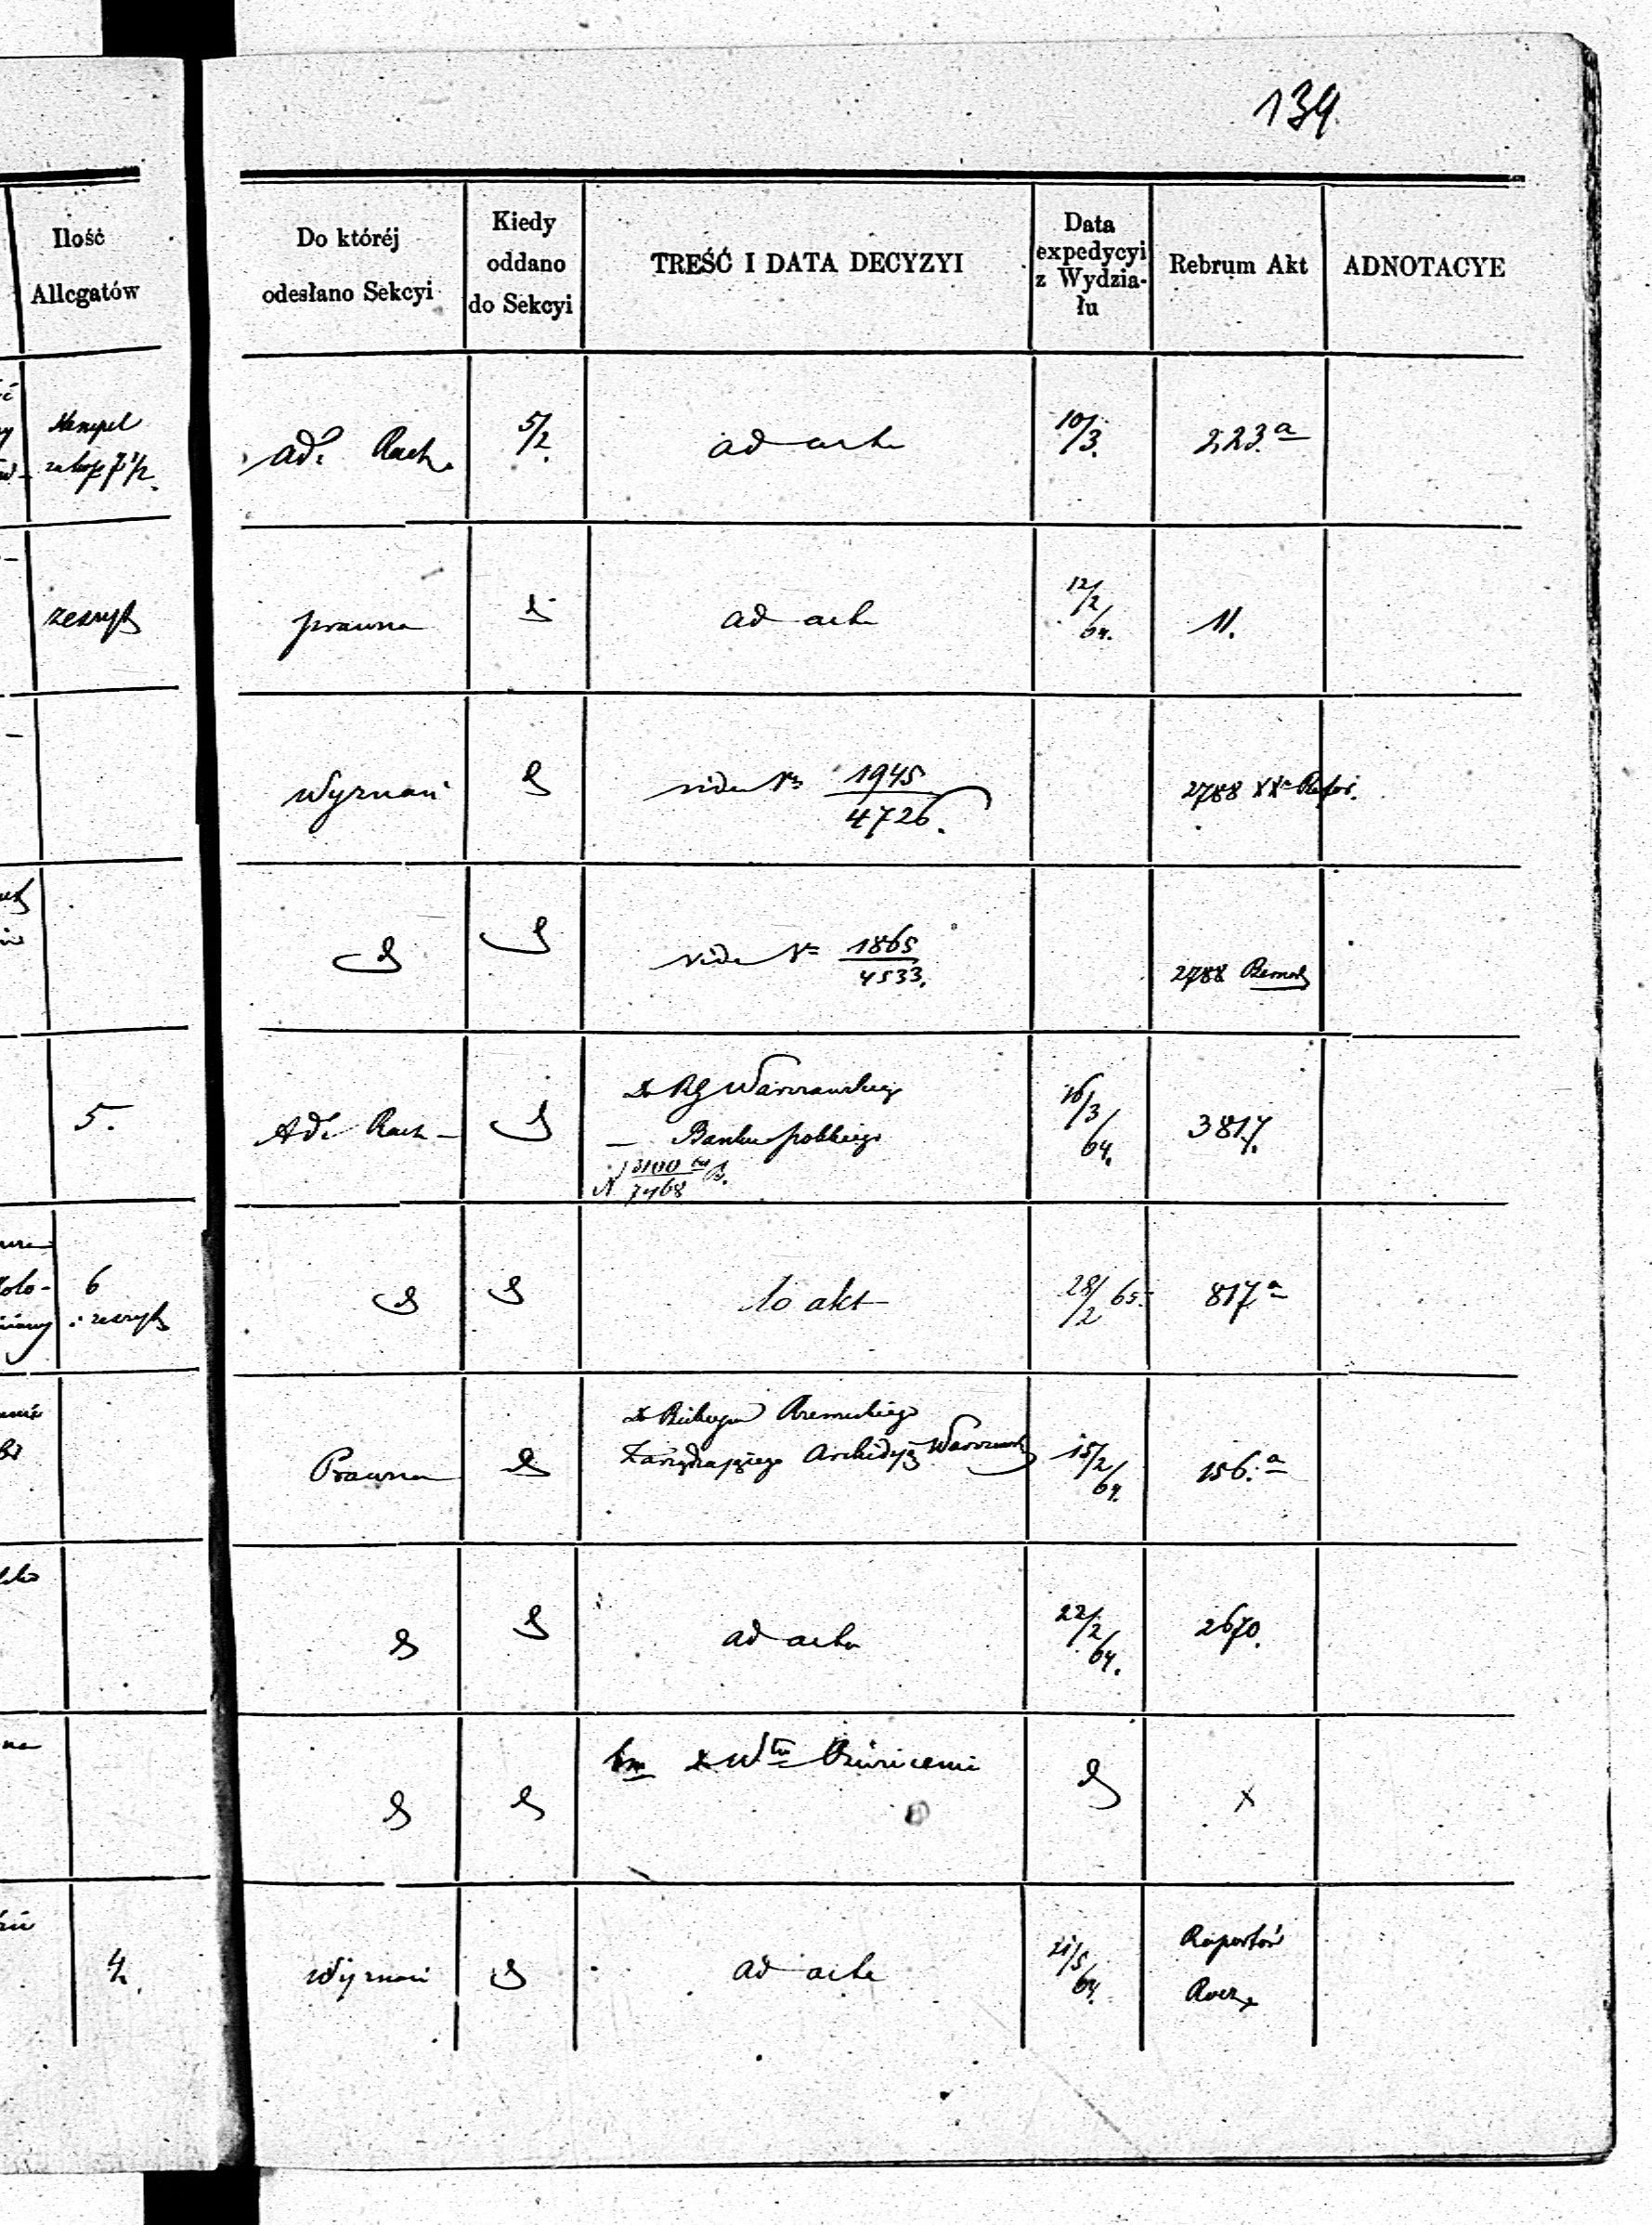 139
Ilość
Allegatów
Do któréj
odesłano Sekcyi
Kiedy
oddano
do Sekcyi
TREŚĆ I DATA DECYZYI
Data
expedycyi
z Wydzia-
łu
Rebrum Akt
ADNOTACYE
Stempel
Adm Rach.
5/2.
ad acta
10/3.
223.a
zeszyt
prawna
ad acta
12/2/64.
11.
Wyznań
vide No 1945/4726.
2788
vide No 1865/4533.
2788
5.
Adm Rach
Do RG Warszawskiego
— Banku polskiego
3100/7468
16/3/64.
3817.
6
i zeszyt
do akt
28/2 65.
817.a
Prawna
Do Biskupa
Zarządzającego Archidyec Warszawską
15/2/64.
156.a
ad acta
22/2/64.
2670.
x
4.
Wyznań
ad acta
21/5/64.
Raportów
Rocz.